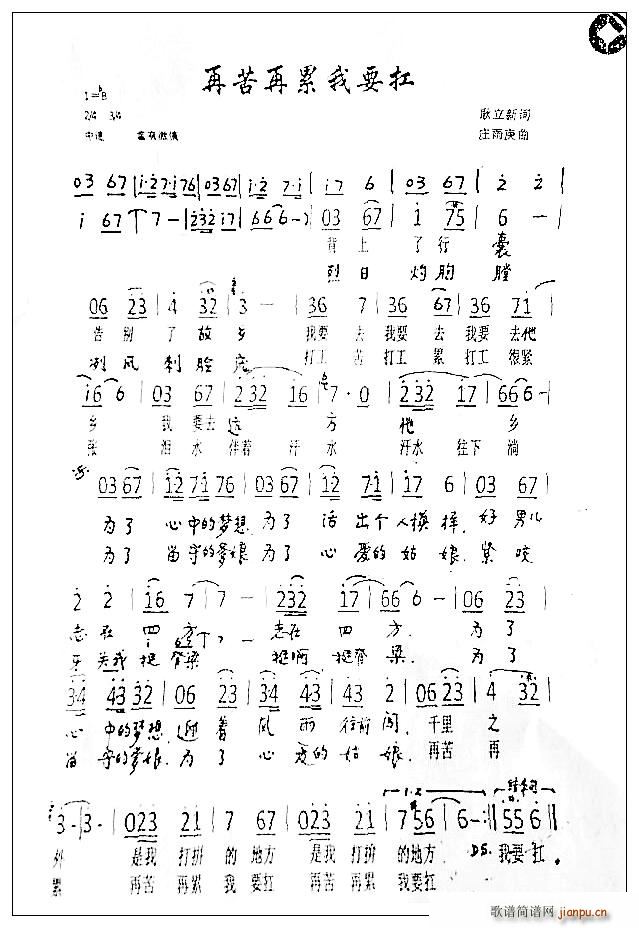 再苦再累我要扛
1=♭B
2/4 3/4
耿立新 词
中速
庄雨庚 曲
03 67 | i·2 7·i76 | 03 67 | i·2 7·i | i7 6 | 03 67 | 2 2 |
i 67 7 | 7 - | 232 i7 | 666 - | 03 67 | 1 75 | 6 - |
背上 了行 囊
烈日 灼胸 膛
06 23 | 4 32 | 3 - | 36 7 | 36 67 | 36 71 |
告别 了故乡 我要去我要去我要去他
冽风 刺脸庞 打工苦打工累打工很紧
i6 6 | 03 67 | 232 16 | 7·0 | 232 17 | 666 - |
乡 我要去远方 他乡
张 泪水伴着汗水 汗水往下淌
03 67 | 12 71 76 | 03 67 | 12 71 | 17 6 | 03 67 |
为了 心中的梦想,为了 活出个人模样,好男儿
为了 留守的爹娘 为了 心爱的姑娘,紧咬
2 2 | 16 7 | 7 - | 232 17 | 666 - | 06 23 |
志在四方 志在四方, 为了
牙关我挺脊梁 挺脊梁, 为了
34 43 32 | 06 23 | 34 43 | 32 42 | 06 23 | 4 32 |
心中的梦想,迎着 风雨往前闯,千里之
留守的爹娘,为了 心爱的姑娘,再苦再
3· 3· | 023 21 | 7 67 | 023 21 | 7 56 | 6 - :‖ 55 6 ‖
外 是我打拼的地方 是我打拼的地方. D.S. 我要扛。
累 再苦再累我要扛 再苦再累我要扛
歌谱简谱网
jianpu.cn